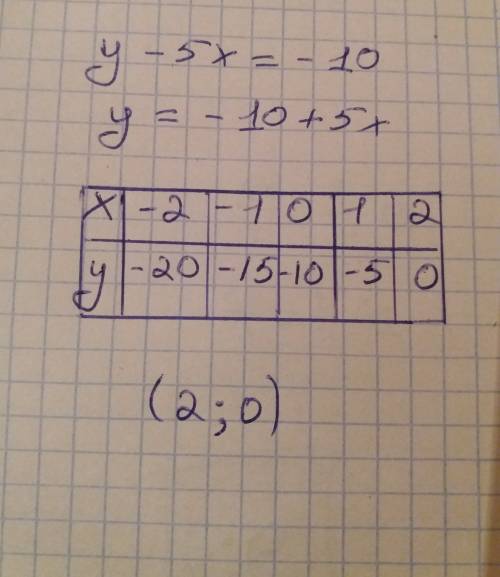 y - 5x = - 10
y = - 10 + 5x
x -2 -1 0 1 2
y -20 -15 -10 -5 0
(2 ; 0)